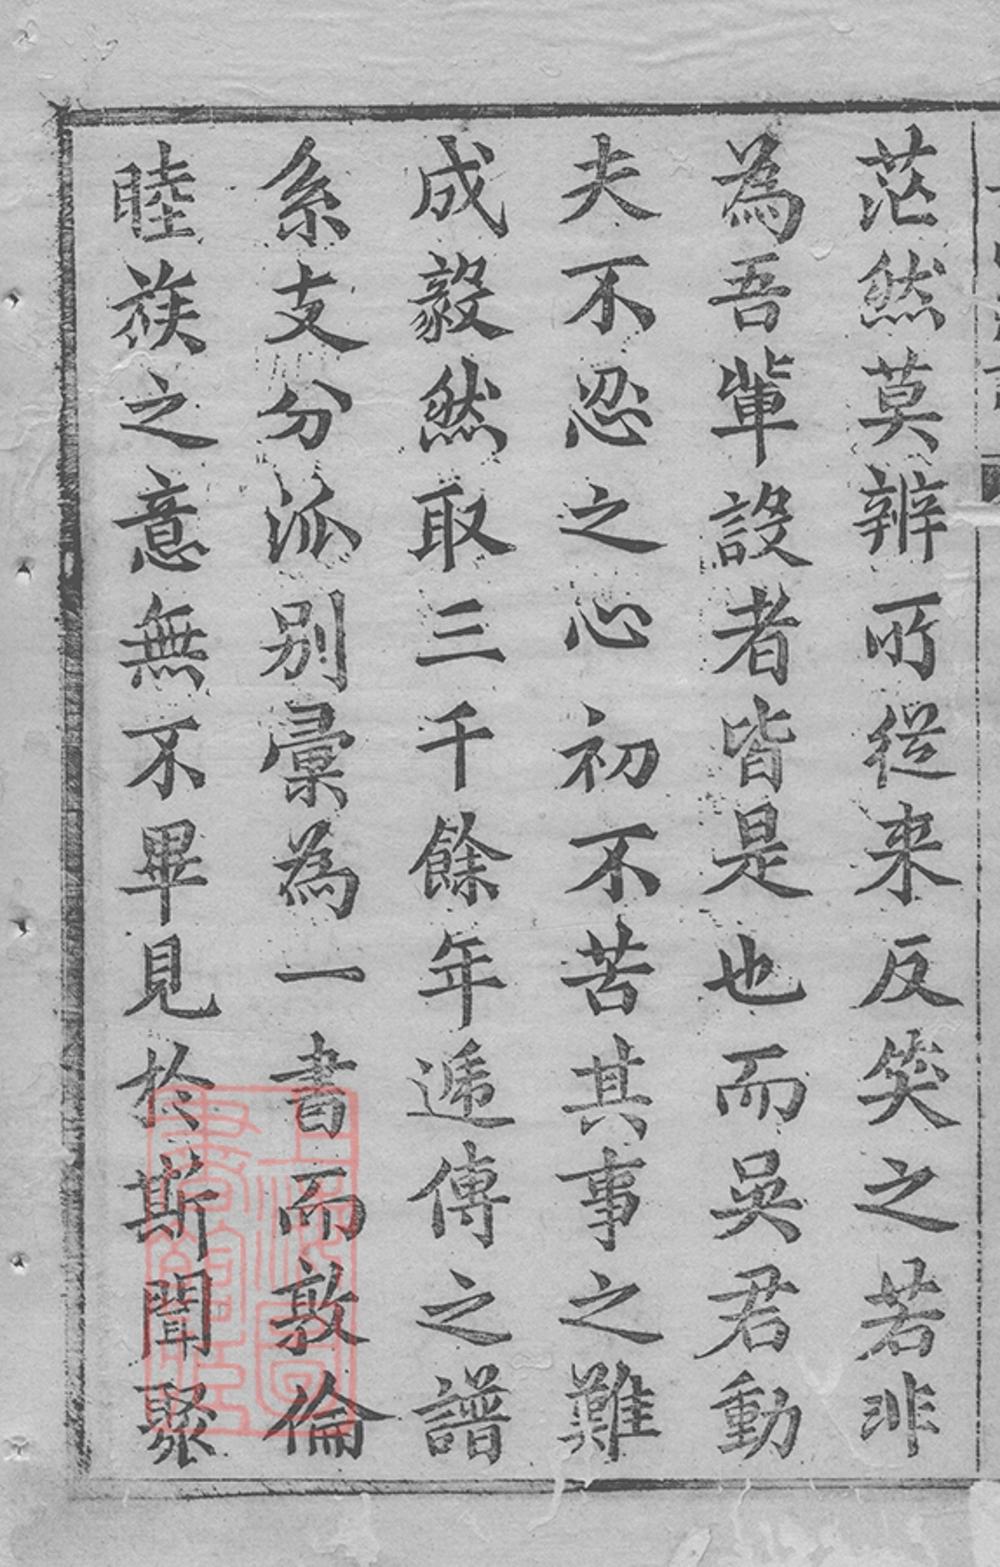 茫然莫辨所從来反笑之若非
為吾軰設者皆是也而吳君動
夫不忍之心初不苦其事之難
成毅然取三千餘年遞傳之譜
系支分派別彚為一書而敦倫
睦族之意無不畢見於斯聞聚
上海圖書館藏